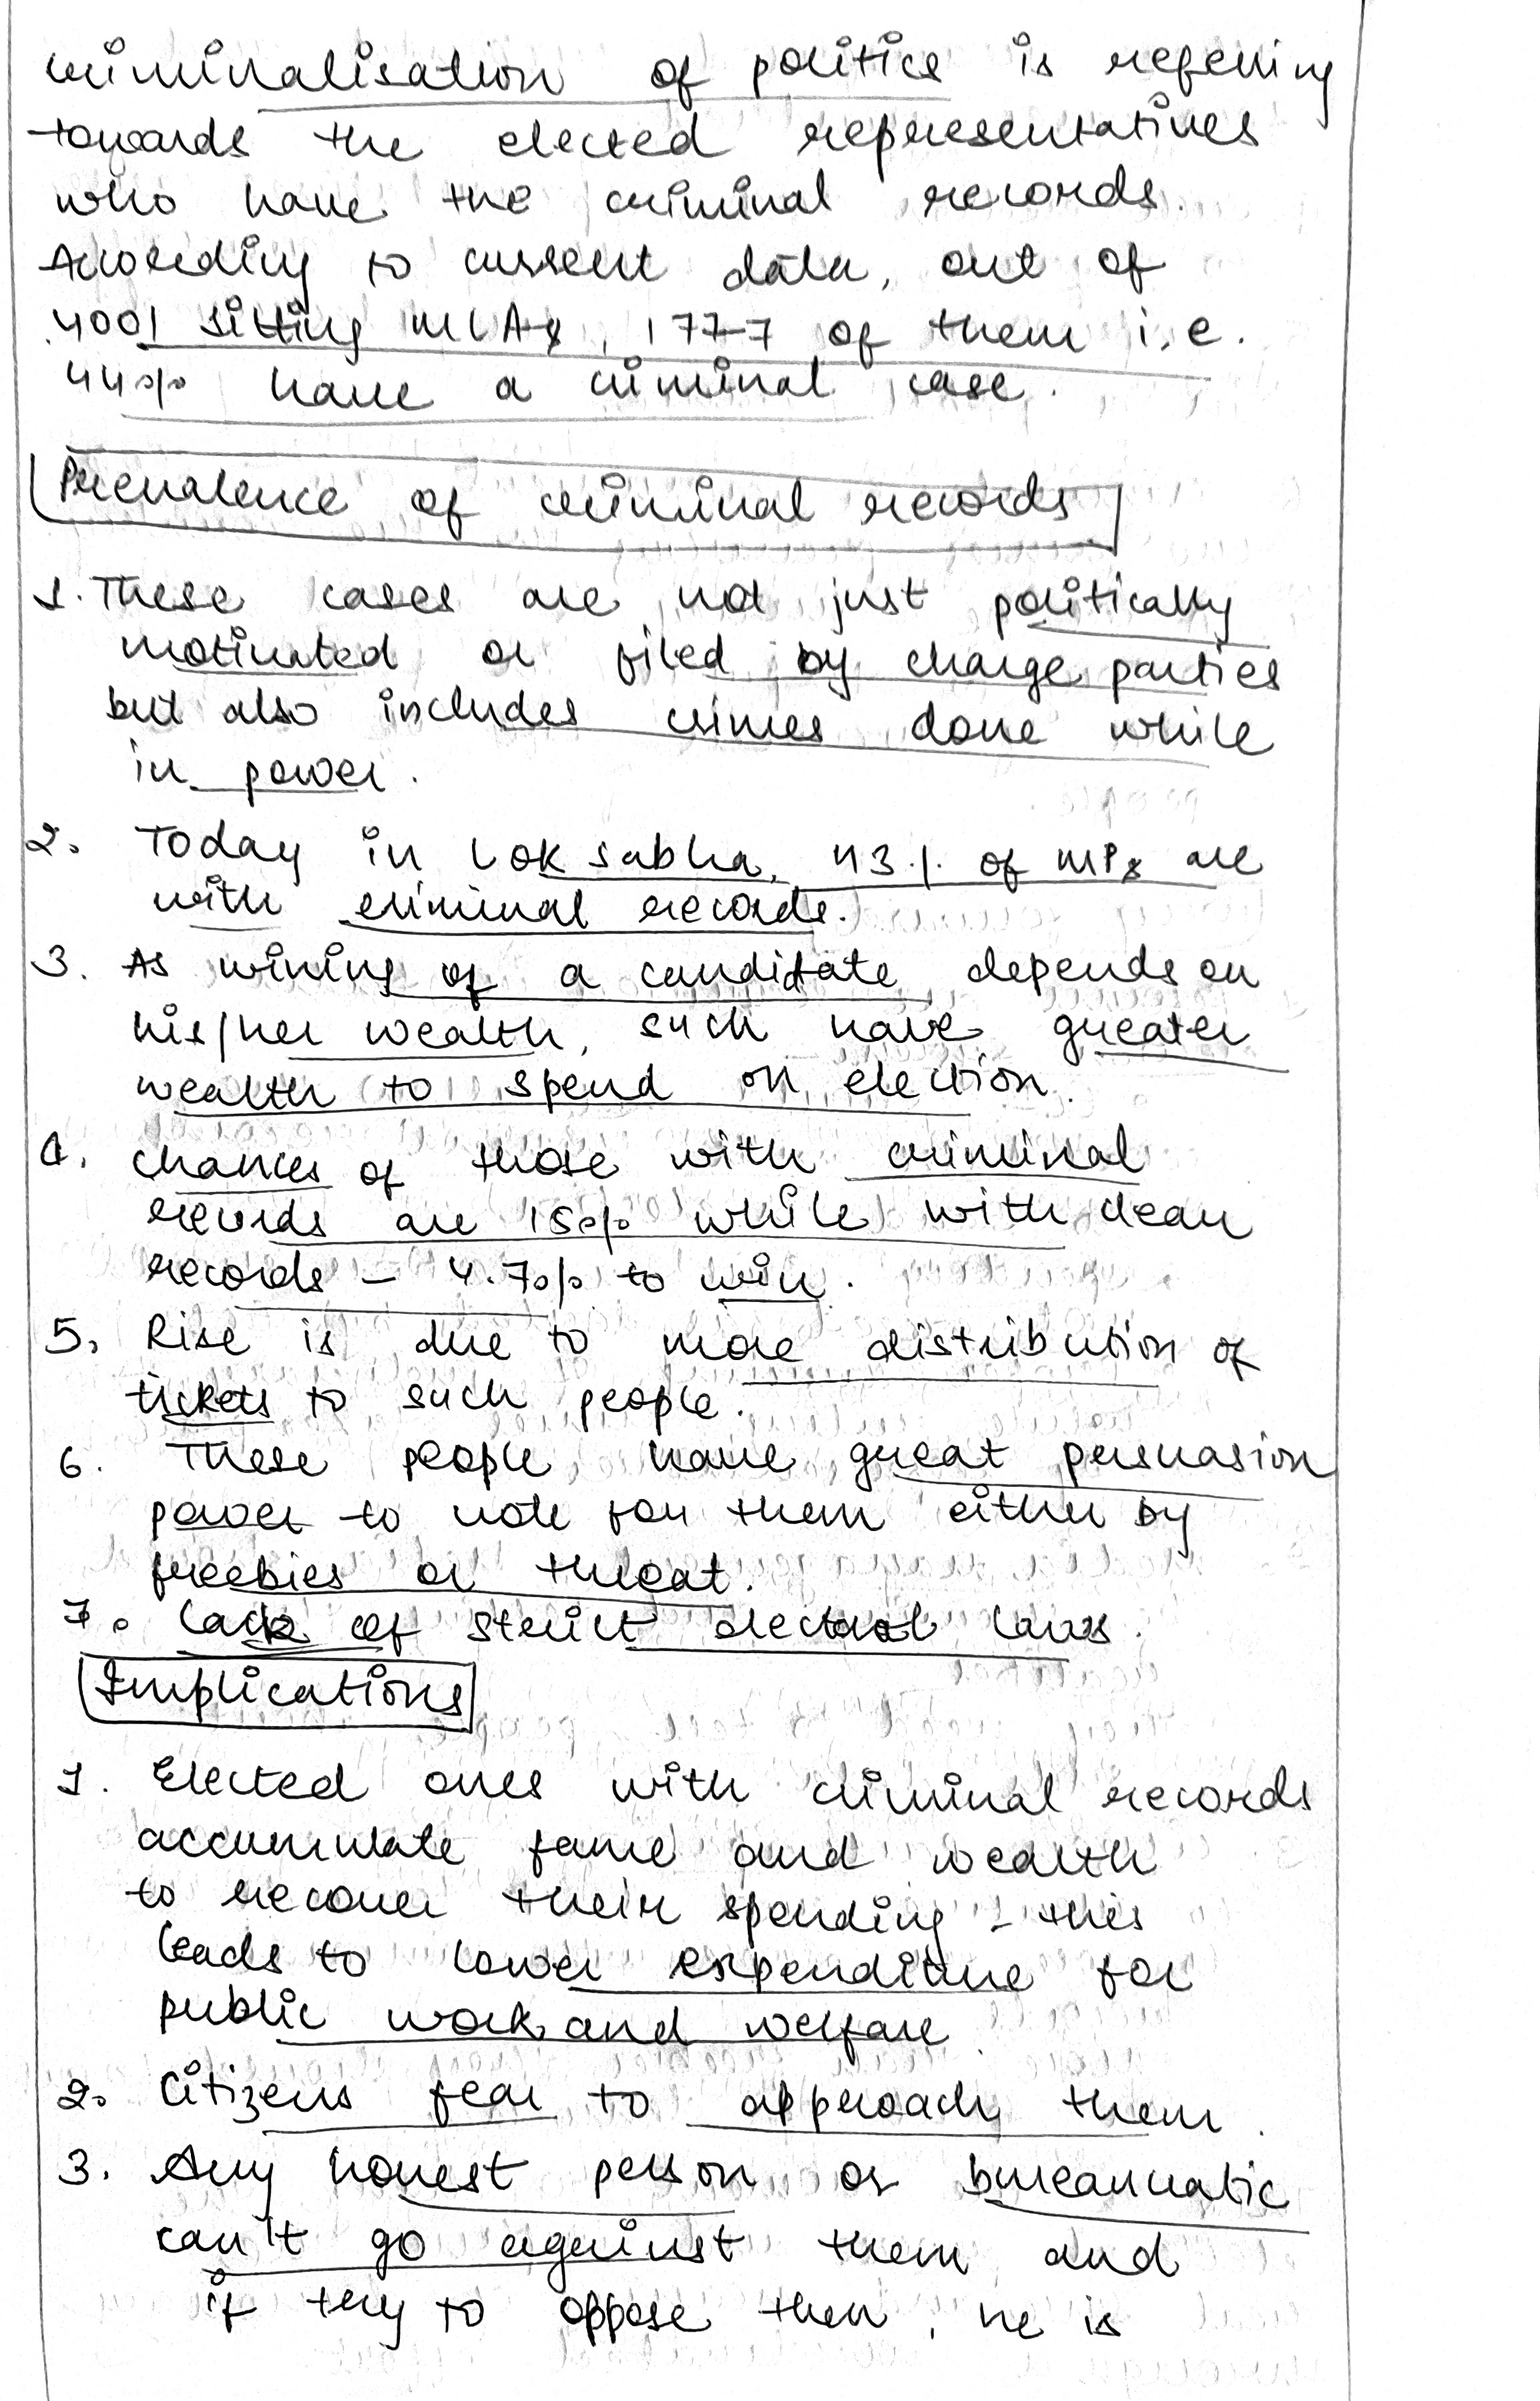 criminalisation of politics is refering
towards the elected representatives
who have the criminal records.
According to current data, out of
4001 sitting MLAs, 1777 of them i.e.
44% have a criminal case.
Prevalence of criminal records
1. These cases are not just politically
motivated or filed by charge parties
but also includes crimes done while
in power.
2. Today in Lok sabha, 43% of MPs are
with criminal records.
3. As wining of a candidate depends on
his/her wealth, such have greater
wealth to spend on election.
4. chances of those with criminal
records are 15% while with clean
records - 4.7% to win.
5. Rise is due to more distribution of
tickets to such people.
6. These people have great persuasion
power to vote for them either by
freebies or threat.
7. Lack of strict electoral laws.
Implications
1. Elected ones with criminal records
accumulate fame and wealth
to recover their spending - this
leads to lower expenditure for
public work and welfare
2. Citizens fear to approach them.
3. Any honest person or bureaucratic
can't go against them and
if try to oppose then, he is